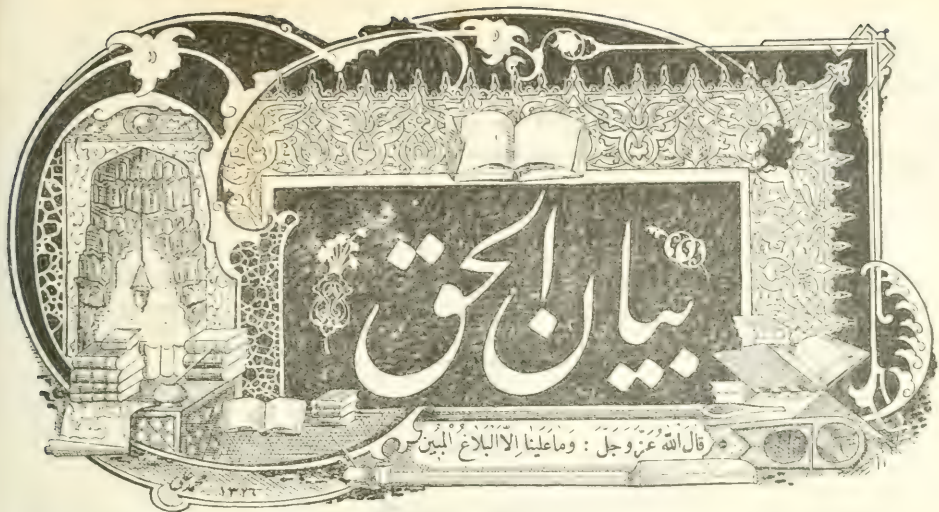 بيان الحق
قَالَ اللهُ عَزَّ وَجَلَّ : وَمَا عَلَيْنَا اِلَّا الْبَلَاغُ الْمُبِينُ
١٣٢٦